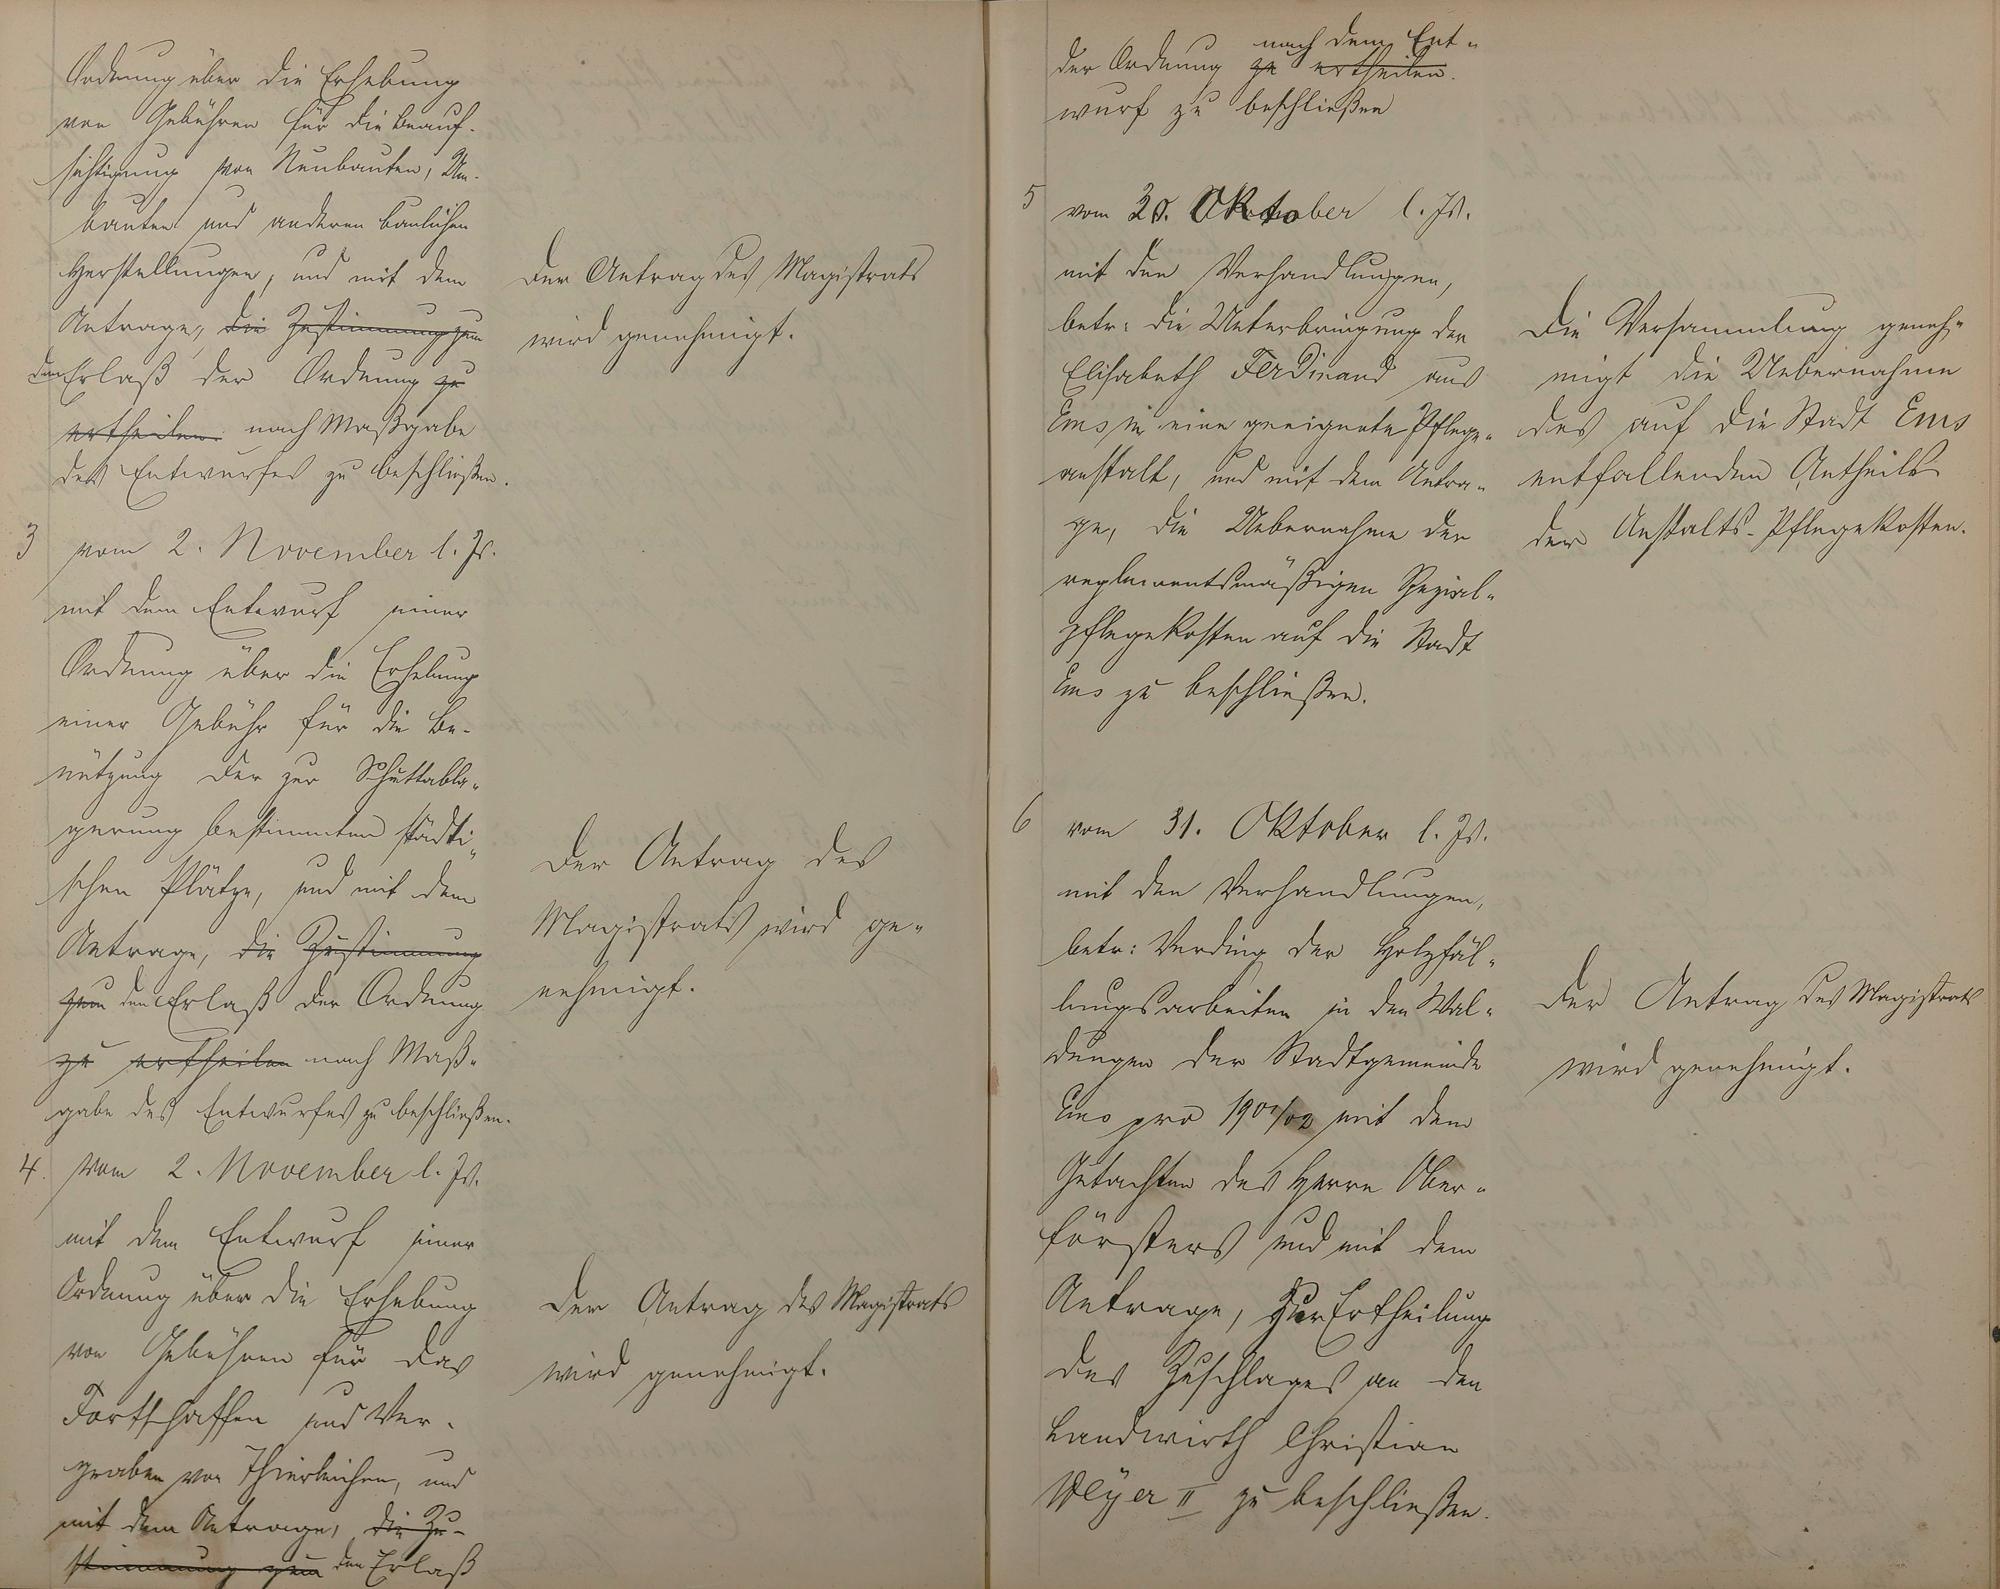 Ordnung über die Erhebung
von Gebühren für die Beauf-
sichtigung von Neubauten, Um-
bauten und anderen baulichen
Herstellungen, und mit dem
Antrage, die Zustimmung zum
den Erlaß der Ordnung zu
ertheilen. nach Maßgabe
des Entwurfes zu beschließen.
Der Antrag des Magistrats
wird genehmigt.
3 vom 2. November l. Js.
mit dem Entwurf einer
Ordnung über die Erhebung
einer Gebühr für die Be-
nützung der zur Schuttabla-
gerung bestimmten städti-
schen Plätze, und mit dem
Antrage, die Zustimmung
zum den Erlaß der Ordnung
zu ertheilen nach Maß-
gabe des Entwurfes zu beschließen.
Der Antrag des
Magistrats wird ge-
nehmigt.
4. vom 2. November l. Js.
mit dem Entwurf einer
Ordnung über die Erhebung
von Gebühren für das
Fortschaffen und Ver-
graben von Thierleichen, und
mit dem Antrage, die Zu-
stimmung zum den Erlaß
Der Antrag des Magistrats
wird genehmigt.
nach dem Ent-
der Ordnung zu ertheilen.
wurf zu beschließen
5 vom 20. Oktober l. Js.
mit den Verhandlungen,
betr: die Unterbringung der
Elisabeth Ferdinand aus
Ems in eine geeignete Pflege-
anstalt, und mit dem Antra-
ge, die Uebernahme der
reglementsmäßigen Spezial-
pflegekosten auf die Stadt
Ems zu beschließen.
Die Versammlung geneh-
migt die Uebernahme
des auf die Stadt Ems
entfallenden Antheils
der Anstalts-Pflegekosten.
6 vom 31. Oktober l. Js.
mit den Verhandlungen,
betr: Verding der Holzfäl-
lungsarbeiten in den Wal-
dungen der Stadtgemeinde
Ems pro 1901/02 mit dem
Gutachten des Herrn Ober-
försters und mit dem
Antrage, zur Ertheilung
des Zuschlages an den
Landwirth Christian
Weyer II zu beschließen.
Der Antrag des Magistrats
wird genehmigt.